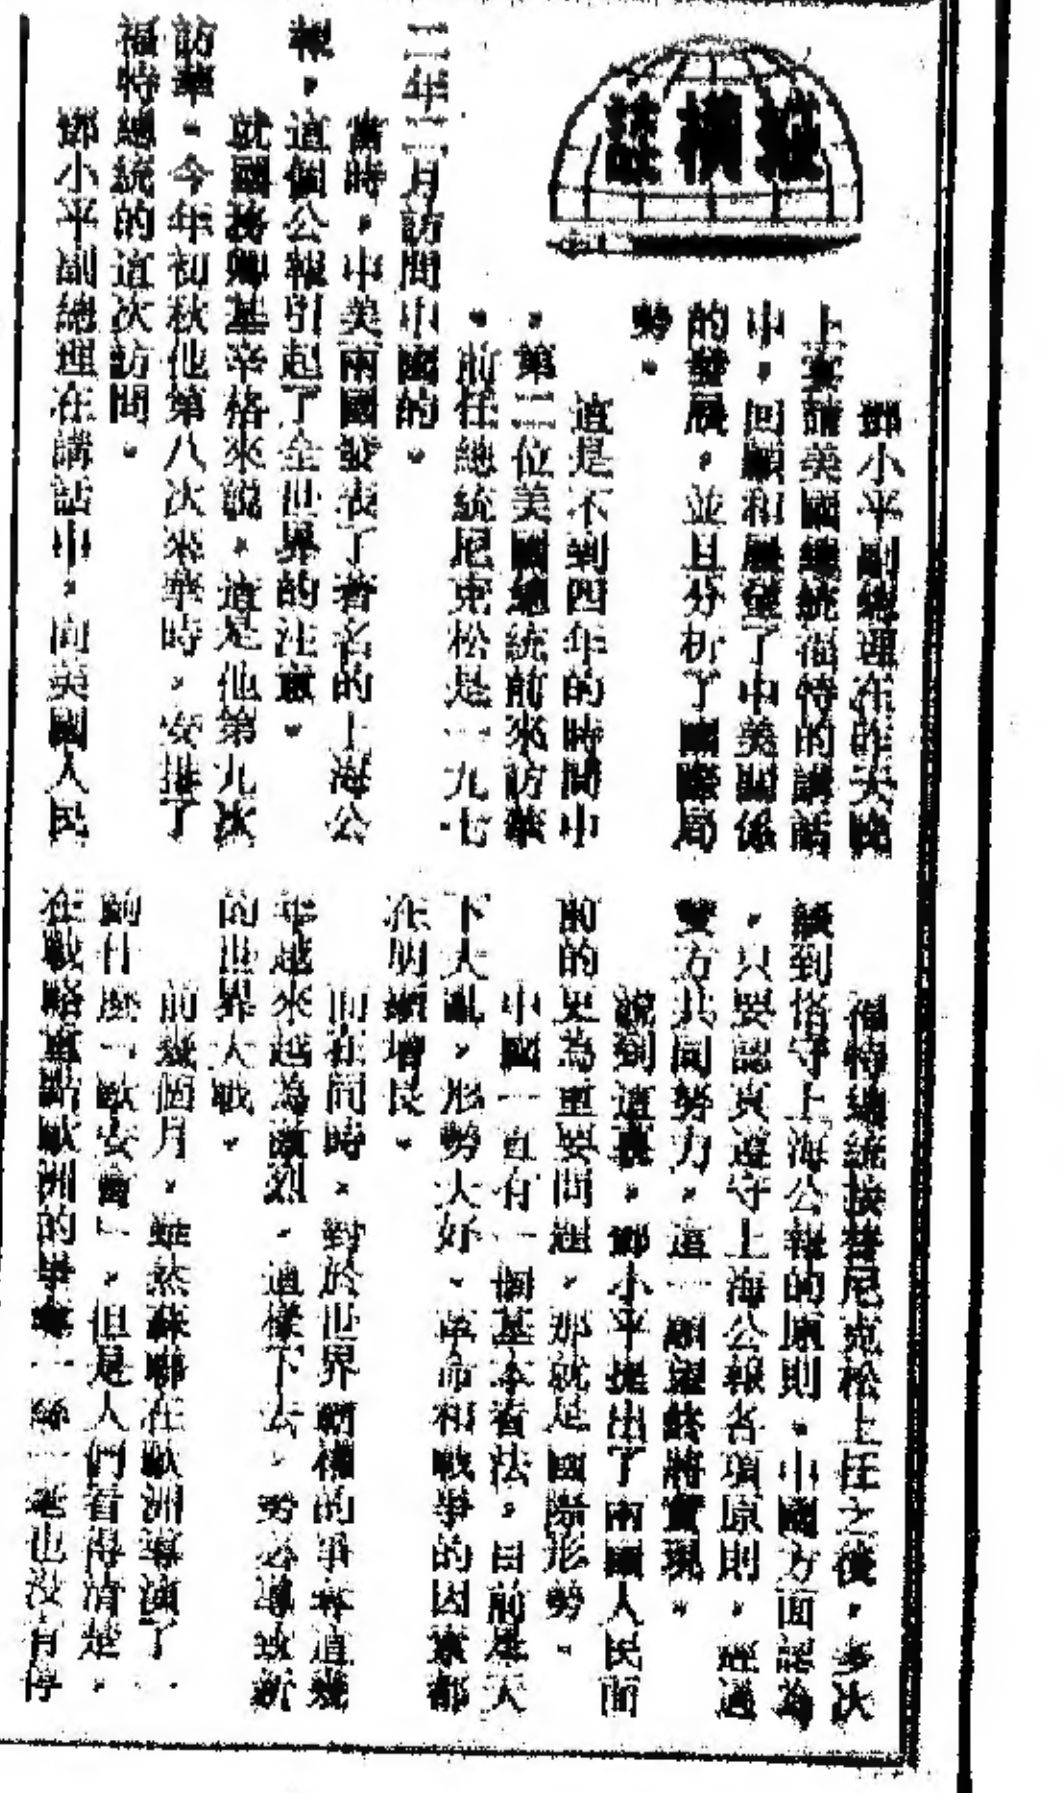 縱橫談
鄧小平副總理在昨天晚
上宴請美國總統福特的講話
中，回顧和展望了中美關係
的發展，並且分析了國際局
勢。
這是不到四年的時間中
，第二位美國總統前來訪華
。前任總統尼克松是一九七
二年二月訪問中國的。
當時，中美兩國發表了著名的上海公
報，這個公報引起了全世界的注意。
就國務卿基辛格來說，這是他第九次
訪華。今年初秋他第八次來華時，安排了
福特總統的這次訪問。
鄧小平副總理在講話中，向美國人民
福特總統接替尼克松上任之後，多次
到恪守上海公報的原則。中國方面認為
，只要認真遵守上海公報各項原則，經過
雙方共同努力，這一願望終將實現。
說到這裏，鄧小平提出了兩國人民面
前的更為重要問題，那就是國際形勢。
中國一直有一個基本看法，目前是天
下大亂，形勢大好。革命和戰爭的因素都
在明顯增長。
而在同時，對於世界霸權的爭奪這幾
年越來越為激烈。這樣下去，勢必導致新
的世界大戰。
前幾個月，雖然蘇聯在歐洲導演了
齣什麼「歐安會」，但是人們看得清楚，
在戰略重點歐洲的爭奪一絲一毫也沒有停